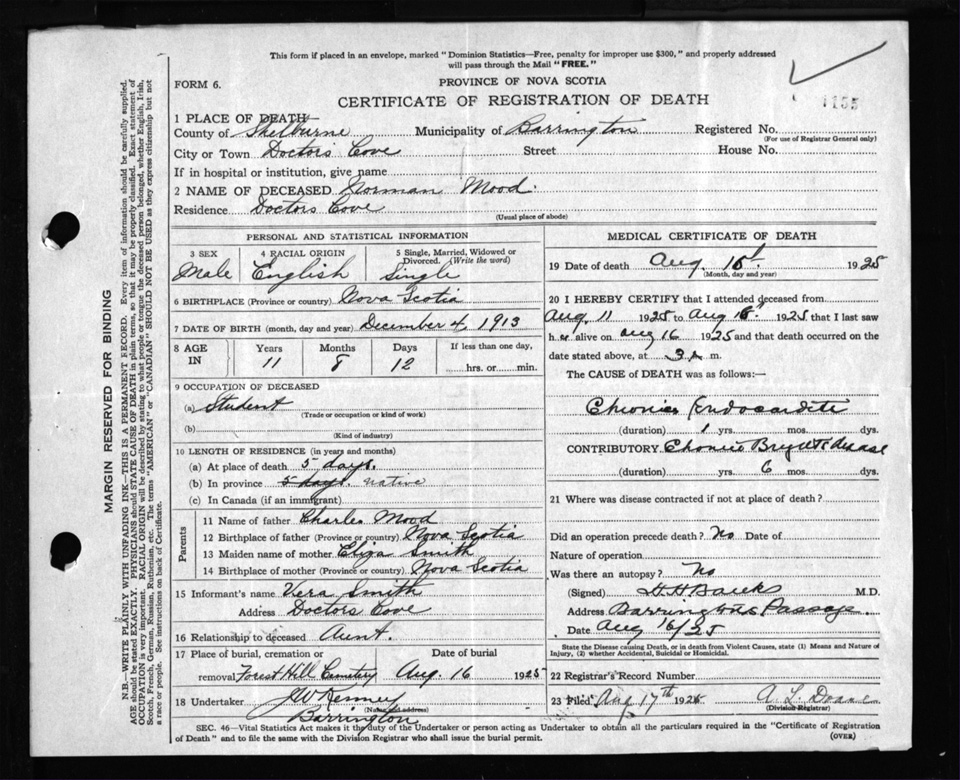 This form if placed in an envelope, marked "Dominion Statistics—Free, penalty for improper use $300," and properly addressed
will pass through the Mail "FREE."
FORM 6.
PROVINCE OF NOVA SCOTIA
CERTIFICATE OF REGISTRATION OF DEATH
1155
1 PLACE OF DEATH
County of Shelburne Municipality of Barrington Registered No.
(For use of Registrar General only)
City or Town Doctors Cove Street House No.
If in hospital or institution, give name
2 NAME OF DECEASED Norman Mood.
Residence Doctors Cove
(Usual place of abode)
PERSONAL AND STATISTICAL INFORMATION
3 SEX 4 RACIAL ORIGIN 5 Single, Married, Widowed or
Divorced. (Write the word)
Male English Single
6 BIRTHPLACE (Province or country) Nova Scotia
7 DATE OF BIRTH (month, day and year) December 4, 1913
8 AGE IN Years Months Days If less than one day,
11 8 12 hrs. or min.
9 OCCUPATION OF DECEASED
(a) Student
(Trade or occupation or kind of work)
(b)
(Kind of industry)
10 LENGTH OF RESIDENCE (in years and months)
(a) At place of death 5 days.
(b) In province 5 days. native
(c) In Canada (if an immigrant)
Parents
11 Name of father Charles Mood
12 Birthplace of father (Province or country) Nova Scotia
13 Maiden name of mother Eliza Smith
14 Birthplace of mother (Province or country) Nova Scotia
15 Informant's name Vera Smith
Address Doctors Cove
16 Relationship to deceased Aunt.
17 Place of burial, cremation or Date of burial
removal Forest Hill Cemetery Aug. 16 1925
18 Undertaker
(Name and address)
Barrington
MEDICAL CERTIFICATE OF DEATH
19 Date of death Aug. 1925
(Month, day and year)
20 I HEREBY CERTIFY that I attended deceased from
Aug. 11 1925 to Aug 1925 that I last saw
h alive on Aug 16 1925 and that death occurred on the
date stated above, at 3 m.
The CAUSE of DEATH was as follows:—
Chronic Endocarditis
(duration) 1 yrs. mos. dys.
CONTRIBUTORY Chronic Brights disease
(duration) yrs. 6 mos. dys.
21 Where was disease contracted if not at place of death?
Did an operation precede death? No Date of
Nature of operation
Was there an autopsy? No
(Signed) H H Banks M.D.
Address Barrington Passage
Date Aug 16/25
State the Disease causing Death, or in death from Violent Causes, state (1) Means and Nature of
Injury, (2) whether Accidental, Suicidal or Homicidal.
22 Registrar's Record Number
23 Filed Aug 17th 1925 A. L. Doane
(Division Registrar)
SEC. 46—Vital Statistics Act makes it the duty of the Undertaker or person acting as Undertaker to obtain all the particulars required in the "Certificate of Registration
of Death" and to file the same with the Division Registrar who shall issue the burial permit.
(OVER)
MARGIN RESERVED FOR BINDING
N.B.—WRITE PLAINLY WITH UNFADING INK—THIS IS A PERMANENT RECORD. Every item of information should be carefully supplied.
AGE should be stated EXACTLY. PHYSICIANS should STATE CAUSE OF DEATH in plain terms, so that it may be properly classified. Exact statement of
OCCUPATION is very important. RACIAL ORIGIN will be described by stating to what people or tongue the deceased person belonged, whether English, Irish,
Scotch, French, German, Russian, Ruthenian, etc. The terms "AMERICAN" or "CANADIAN" SHOULD NOT BE USED as they express citizenship but not
a race or people. See instructions on back of Certificate.